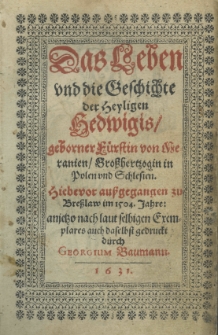 Das Leben
vnd die Geschichte
der Heyligen
Hedwigis/
geborner Fürstin von Me
ranien/ Großhertzogin in
Polen vnd Schlesien.
Hiebevor außgegangen zu
Breßlaw im 1504. Jahre:
anjetzo nach laut selbigen Exem
plares auch daselbst gedruckt
durch
GEORGIUM Baumann.
1631.